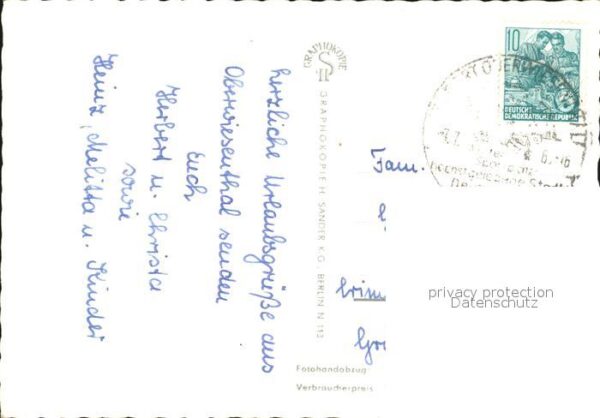 herzliche Urlaubsgrüße aus
Oberwiesenthal senden
Euch
Herbert u. Christa
sowie
Heinz, Melitta u. Kinder
GRAPHOKOPIE
GRAPHOKOPIE H. SANDER K.G. BERLIN N 113
Fotohandabzug
Verbraucherpreis
10
DEUTSCHE
DEMOKRATISCHE REPUBLIK
Fam.
privacy protection
Datenschutz